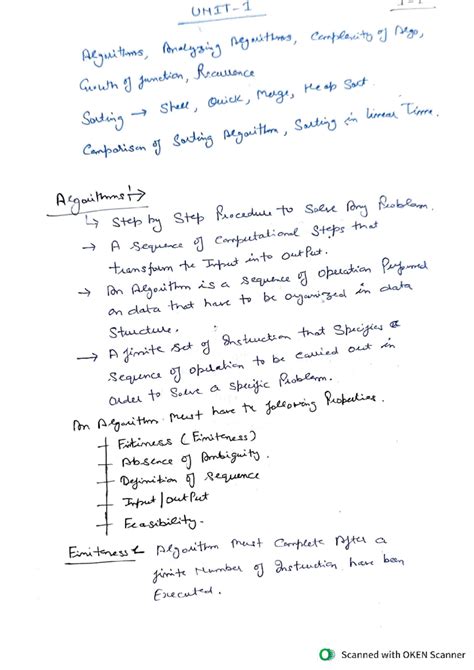 UNIT-1
1-1
Algorithms, Analyzing Algorithms, Complexity of Algo,
Growth of function, Recurrence
Sorting → Shell, Quick, Merge, Heap Sort.
Comparison of Sorting Algorithm, Sorting in linear Time.
Algorithms:→
↳ Step by Step Procedure to Solve Any Problem.
→ A Sequence of Computational Steps that
transform the Input into output.
→ An Algorithm is a Sequence of operation Performed
on data that have to be organized in data
Structure.
→ A finite set of Instruction that Specifies
Sequence of operation to be carried out in
order to Solve a Specific Problem.
An Algorithm Must have the following Properties.
(Finiteness)
Absence of Ambiguity.
Definition of Sequence
Input/output
Feasibility.
Finiteness Algorithm Must Complete After a
finite Number of Instruction have been
Executed.
Scanned with OKEN Scanner